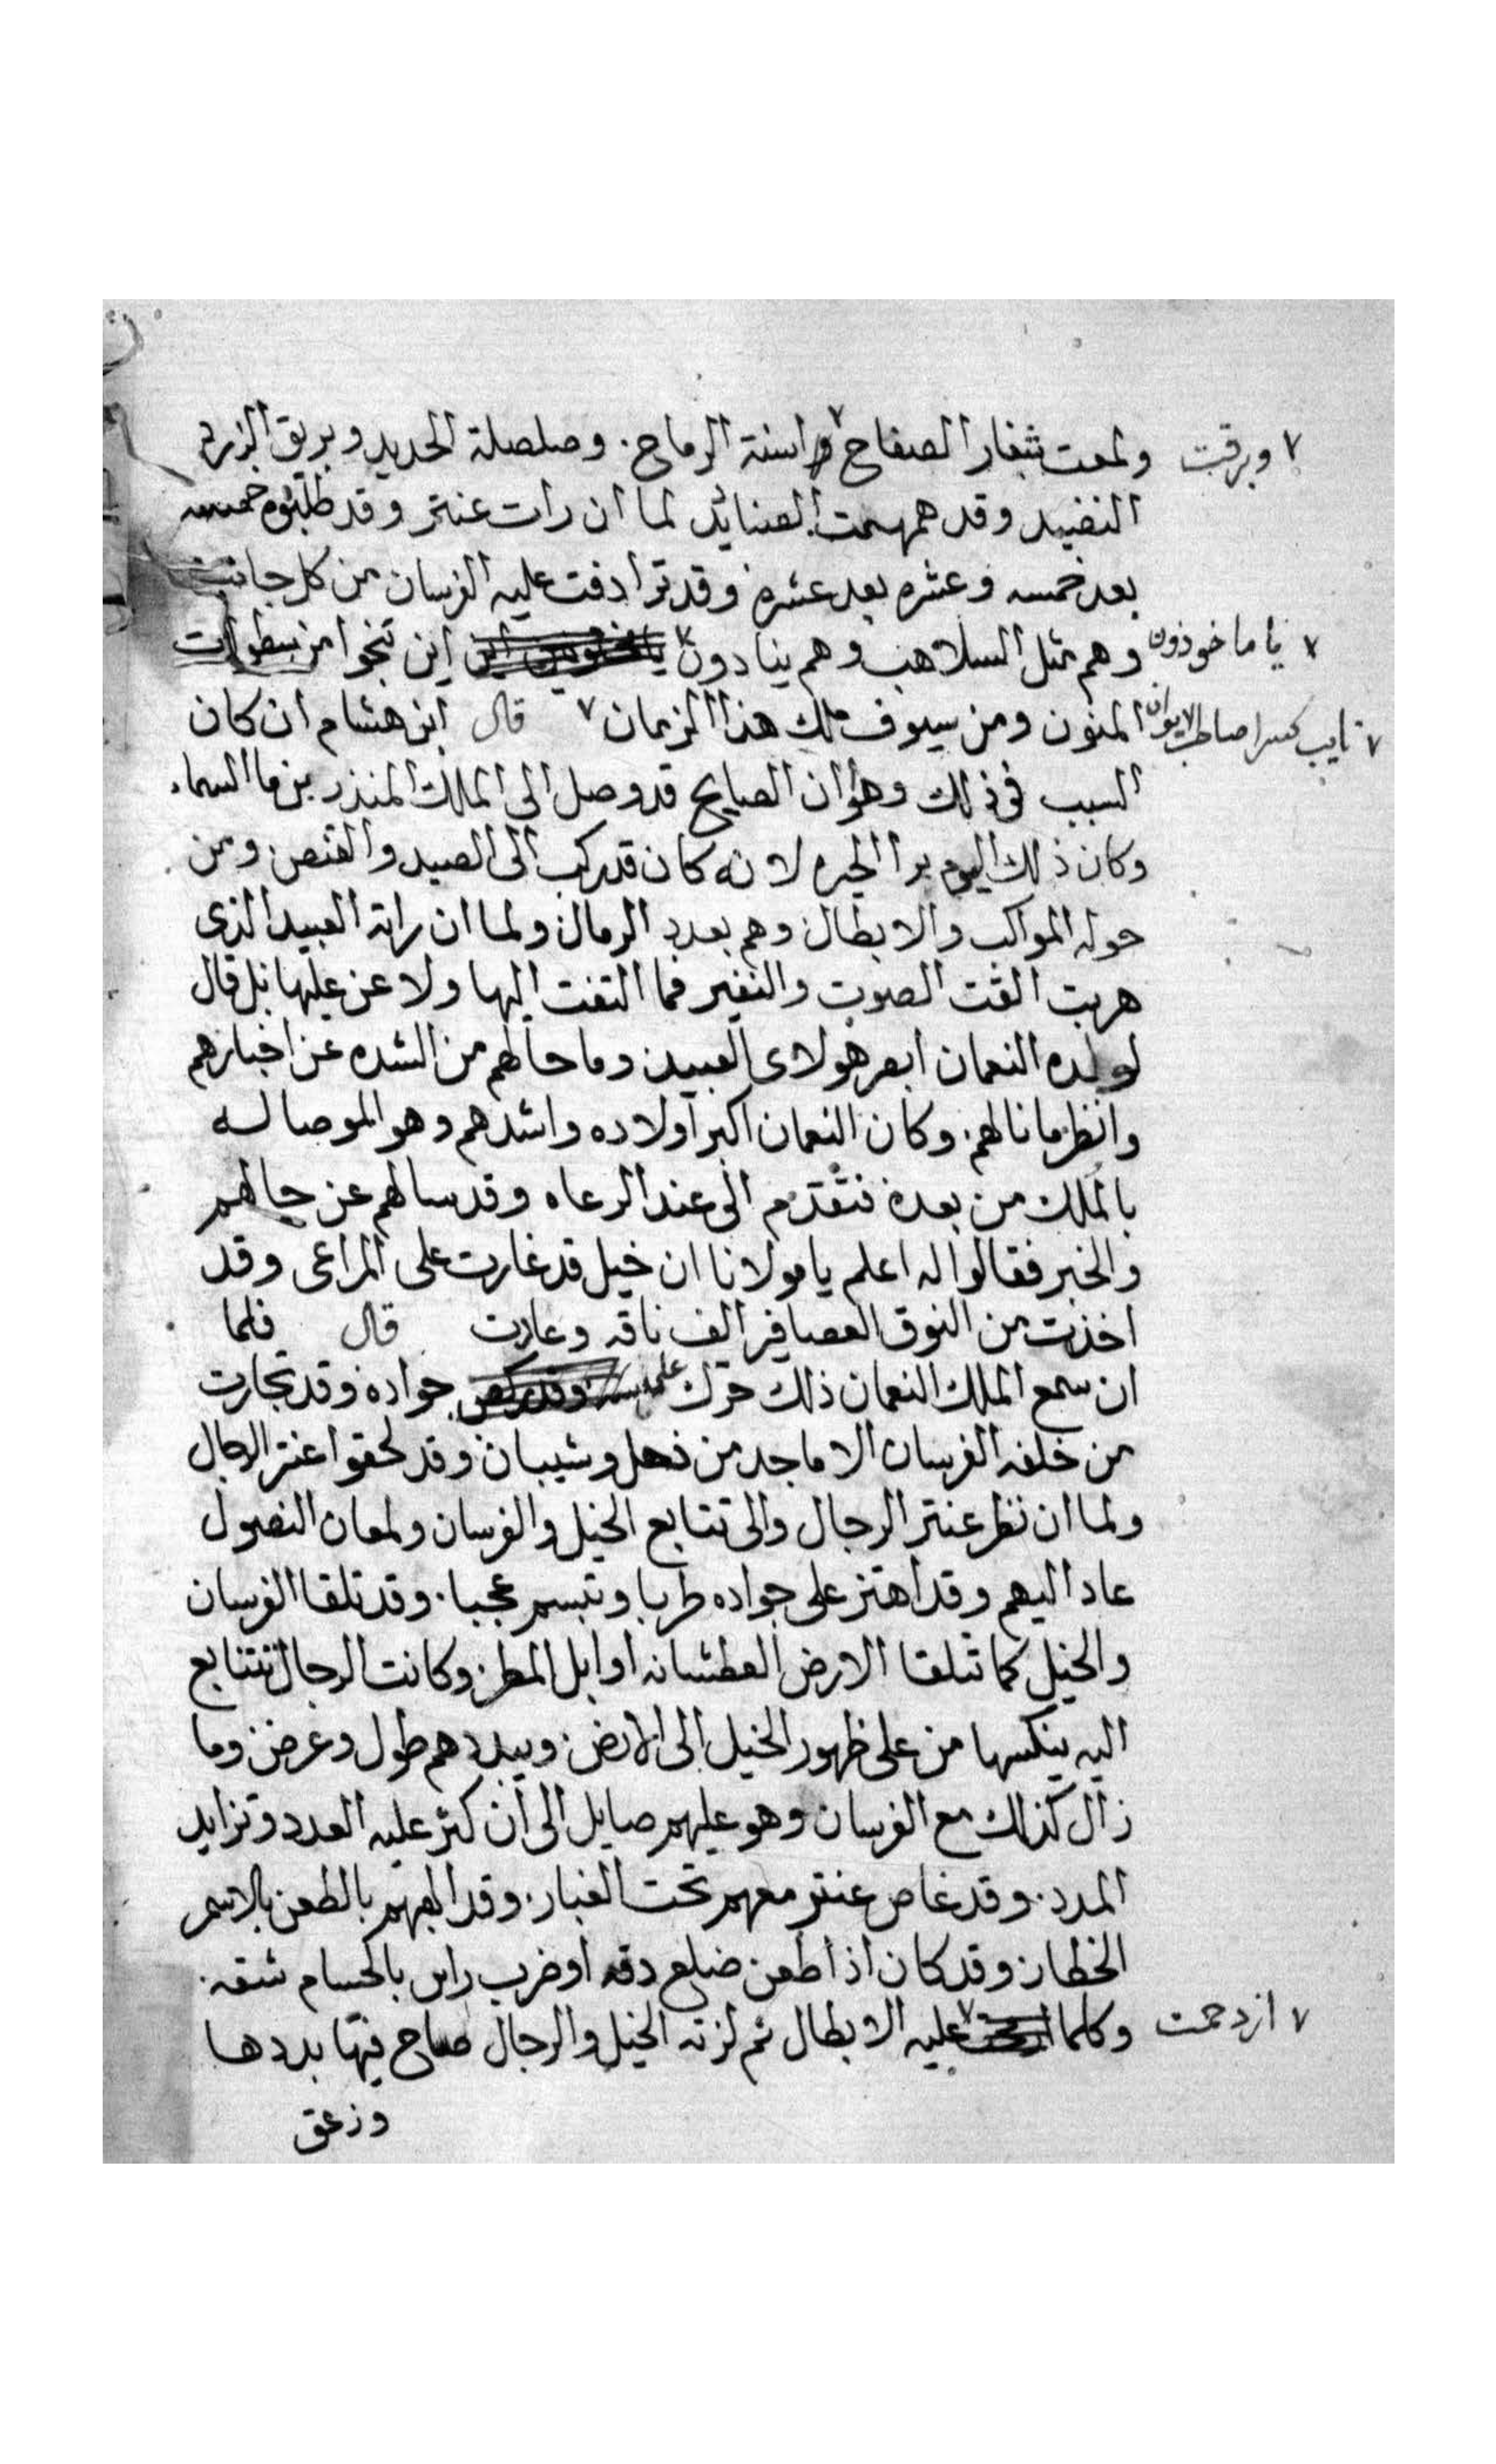 ٧ وبرقت ولمعت شفار الصفاح ٧ واسنة الرماح. وصلصلة الحديد وبريق الزرد
النضيد وقد همهمت الصناديد لما ان رات عنتر وقد طلبوه خمسه
بعد خمسه وعشره بعد عشره وقد ترادفت عليه الفرسان من كل جانب
٧ يا ماخوذون وهم مثل السلاهب وهم ينادون ٧ اين تنجوا من سطوات
٧ نايب كسرا صاحب الايوان المنون ومن سيوف ملك هذا الزمان ٧ قال ابن هشام ان كان
السبب في ذلك وهو ان الصايح قد وصل الى الملك المنذر بن ما السماء
وكان ذلك اليوم برا الحيره لانه كان قد ركب الى الصيد والقنص ومن
حوله المواكب والابطال وهم بعدد الرمال ولما ان راته العبيد الذى
هربت القت الصوت والنفير فما التفت اليها ولا عن عليها بل قال
لولده النعمان ابصر هولاى العبيد وما حالهم من الشده عن اخبارهم
وانظر ما نالهم. وكان النعمان اكبر اولاده واشدهم وهو الموصا له
بالملك من بعده فتقدم الى عند الرعاه وقد سالهم عن حالهم
والخبر فقالوا له اعلم يا مولانا ان خيل قد غارت على المراعى وقد
اخذت من النوق العصافير الف ناقه وعادت قال فلما
ان سمع الملك النعمان ذلك حرك جواده وقد تجارت
من خلفه الفرسان الاماجد من ذهل وشيبان وقد لحقوا عنتر
ولما ان نظر عنتر الرجال والى تتابع الخيل والفرسان ولمعان النصول
عاد اليهم وقد اهتز على جواده طربا وتبسم عجبا. وقد تلقا الفرسان
والخيل كما تلقا الارض العطشانه اوابل المطر وكانت الرجال تتتابع
اليه ينكسها من على ظهور الخيل الى الارض وبيددهم طول وعرض وما
زال كذلك مع الفرسان وهو عليهم صايل الى ان كثر عليه العدد وتزايد
المدد. وقد غاص عنتر معهم تحت الغبار. وقد بالطعن بالاسمر
الخطار وقد كان اذا طعن ضلع دقه او ضرب راس بالحسام شقه.
٧ ازدحمت وكلما ٧ عليه الابطال ثم لزته الخيل والرجال صاح فيها بددها
وزعق